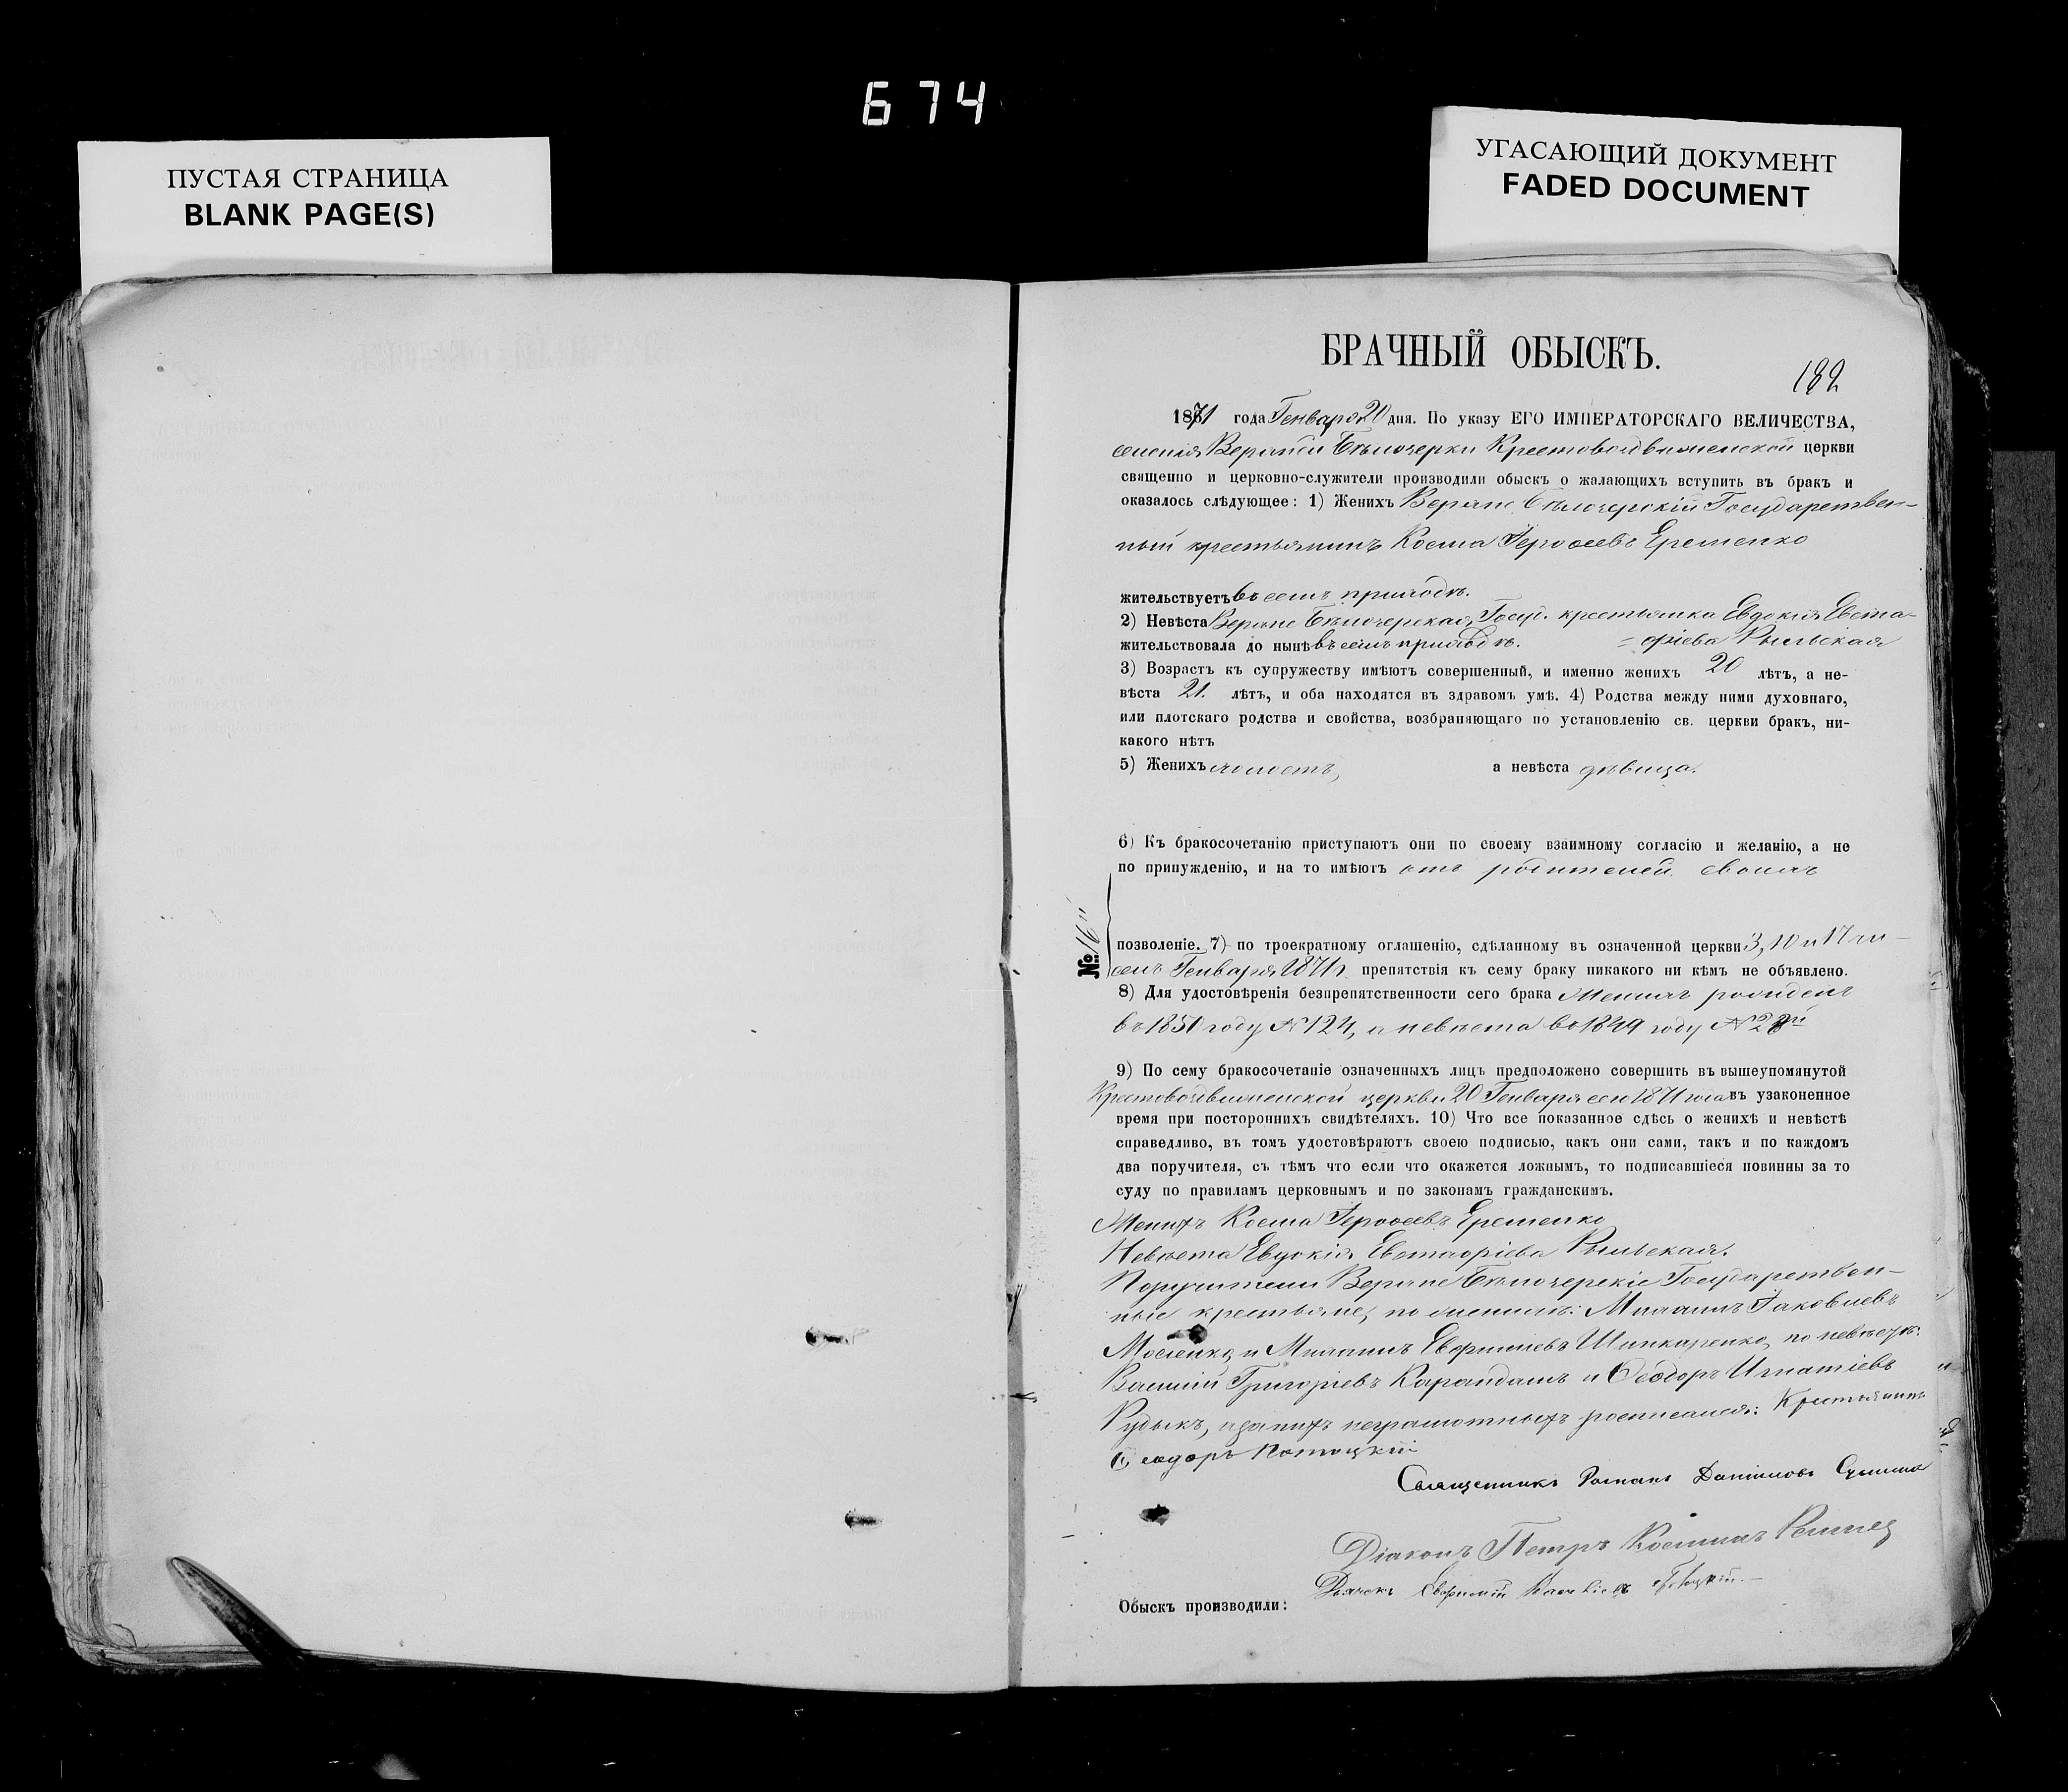 674
ПУСТАЯ СТРАНИЦА
BLANK PAGE(S)
УГАСАЮЩИЙ ДОКУМЕНТ
FADED DOCUMENT
БРАЧНЫЙ ОБЫСКЪ.
182
1871 года Генваря 20 дня. По указу ЕГО ИМПЕРАТОРСКАГО ВЕЛИЧЕСТВА,
селенія Верхней Бѣлозерки Крестовоздвиженской церкви
священно и церковно-служители производили обыскъ о жалающихъ вступить въ бракъ и
оказалось слѣдующее: 1) Женихъ Верхне Бѣлозерскій Государствен-
ный крестьянинъ Косма Іероѳеевъ Еременко
жительствуетъ въ семъ приходѣ.
2) Невѣста Верхне Бѣлозерская Госуд. крестьянка Евдокія Евста-
жительствовала до нынѣ въ семъ приходѣ. = фіева Рыльская
3) Возрастъ къ супружеству имѣютъ совершенный, и именно женихъ 20 лѣтъ, а не-
вѣста 21. лѣтъ, и оба находятся въ здравомъ умѣ. 4) Родства между ними духовнаго,
или плотскаго родства и свойства, возбраняющаго по установленію св. церкви бракъ, ни-
какого нѣтъ
5) Женихъ холостъ, а невѣста дѣвица.
6) Къ бракосочетанію приступаютъ они по своему взаимному согласію и желанію, а не
по принужденію, и на то имѣютъ отъ родителей своихъ
№ 16й
позволеніе. 7) по троекратному оглашенію, сдѣланному въ означенной церкви 3, 10 и 17 чи-
селъ Генваря 1871 г. препятствія къ сему браку никакого ни кѣмъ не объявлено.
8) Для удостовѣренія безпрепятственности сего брака Женихъ рожденъ
въ 1851 году № 124, а невѣста въ 1849 году № 28й
9) По сему бракосочетаніе означенныхъ лицъ предположено совершить въ вышеупомянутой
Крестовоздвиженской церкви 20 Генваря сего 1871 года въ узаконенное
время при постороннихъ свидѣтеляхъ. 10) Что все показанное сдѣсь о женихѣ и невѣстѣ
справедливо, въ томъ удостовѣряютъ своею подписью, какъ они сами, такъ и по каждомъ
два поручителя, съ тѣмъ что если что окажется ложнымъ, то подписавшіеся повинны за то
суду по правиламъ церковнымъ и по законамъ гражданскимъ.
Женихъ Косма Іероѳеевъ Еременко
Невѣста Евдокія Евстафіева Рыльская.
Поручители Верхне Бѣлозерскіе Государствен-
ные крестьяне, по женихѣ: Михаилъ Іаковлевъ
и Михаилъ Шинкаренко, по невѣстѣ:
Василій Григоріевъ Карандашъ и Ѳеодоръ Игнатіевъ
Рудыкъ, а за нихъ неграмотныхъ росписался: Крестьянинъ
Ѳеодоръ Потоцкій
Священникъ Романъ Даниловъ
Діаконъ Петръ Косминъ
Дьячекъ Евфимій
Обыскъ производили: